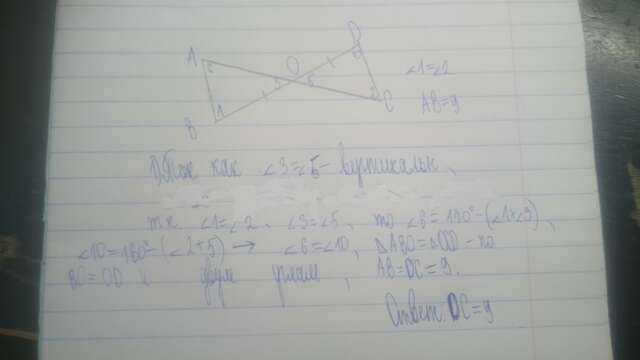 A
D
O
B
C
1
∠1=∠2
AB=9
1) Так как ∠3=∠5 - вертикальн,
т.к ∠1=∠2, ∠3=∠5, то ∠6=180°-(∠1+∠3),
∠10=180°-(∠2+5) → ∠6=∠10, △ABO=△COD - по
BO=OD и двум углам, AB=DC=9.
Ответ: DC=9